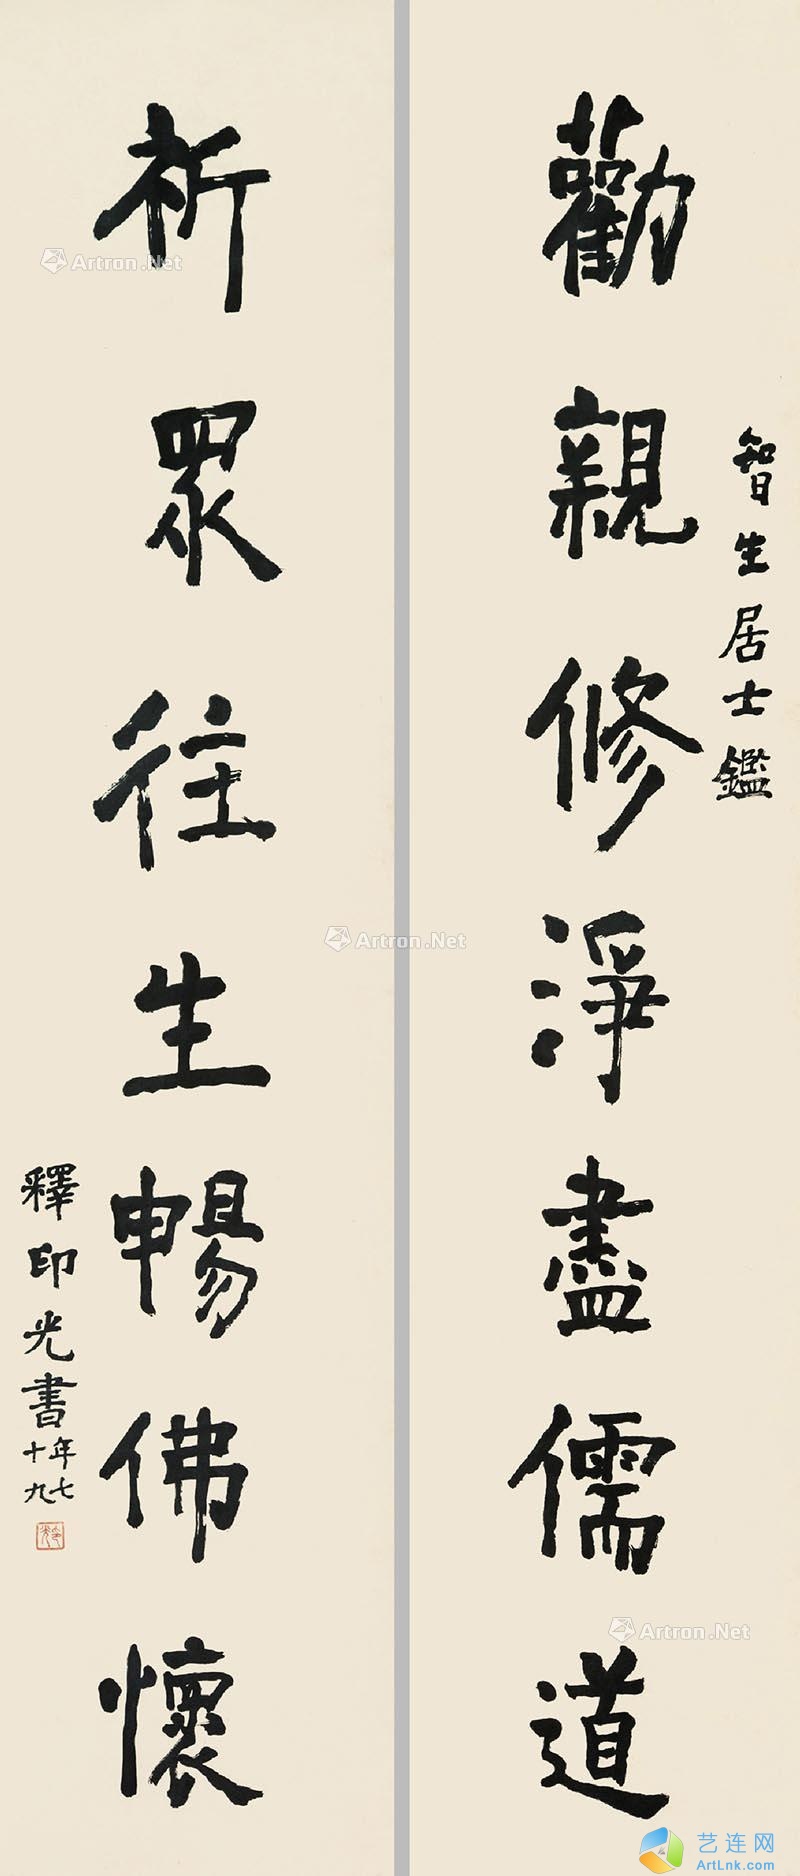 智生居士鑑
勸親修淨盡儒道
祈眾往生暢佛懷
釋印光書
年七
十九
印光
Artron.Net
Artron.Net
Artron.Net
艺连网
ArtLnk.com